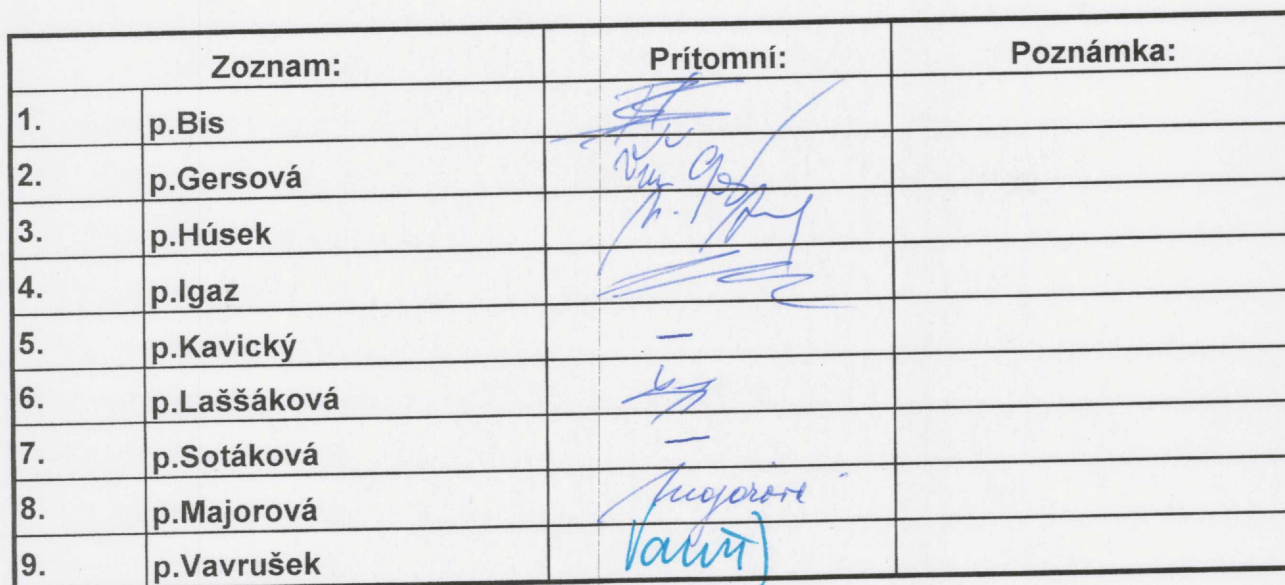 Zoznam: Prítomní: Poznámka:
1. p.Bis
2. p.Gersová
3. p.Húsek
4. p.Igaz
5. p.Kavický –
6. p.Laššáková
7. p.Sotáková –
8. p.Majorová Majorová
9. p.Vavrušek